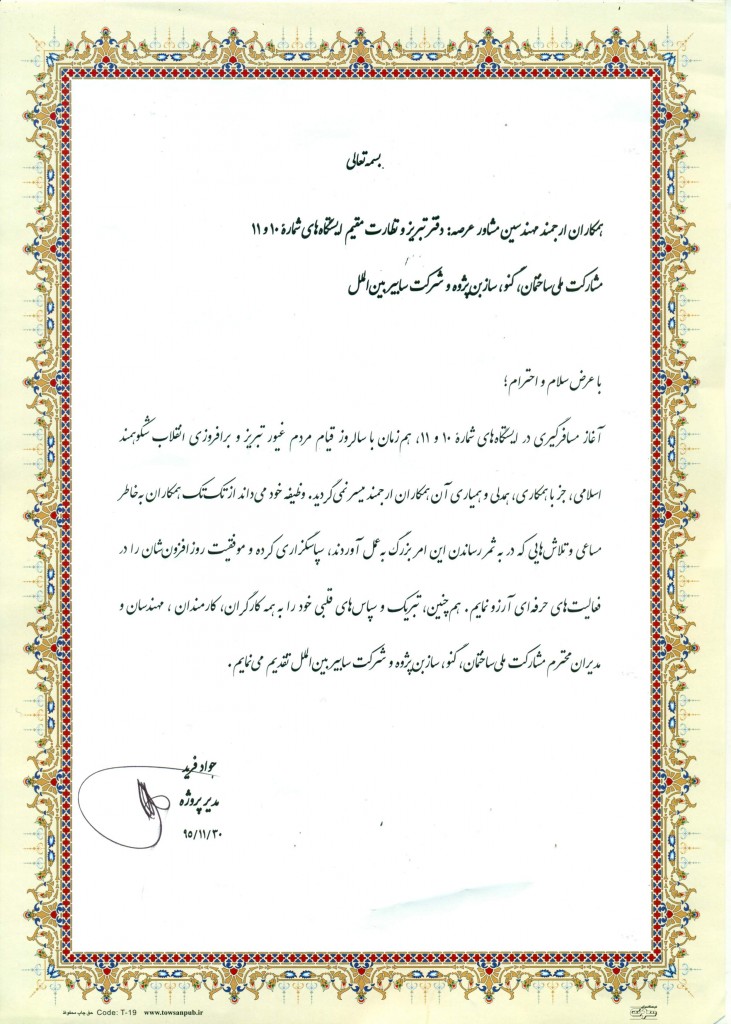 بسمه تعالی
همکاران ارجمند مهندسین مشاور عرصه: دفتر تبریز و نظارت مقیم ایستگاه‌های شمارهٔ ۱۰ و ۱۱
مشارکت ملی ساختمان، گنو، سازبن پژوه و شرکت سابیر بین‌الملل
با عرض سلام و احترام؛
آغاز مسافرگیری در ایستگاه‌های شمارهٔ ۱۰ و ۱۱، هم‌زمان با سالروز قیام مردم غیور تبریز و برافروزی انقلاب شکوهمند
اسلامی، جز با همکاری، همدلی و همیاری آن همکاران ارجمند میسر نمی‌گردید. وظیفه خود می‌داند از تک‌تک همکاران به‌خاطر
مساعی و تلاش‌هایی که در به ثمر رساندن این امر بزرگ به‌عمل آوردند، سپاسگزاری کرده و موفقیت روزافزون‌شان را در
فعالیت‌های حرفه‌ای آرزو نمایم. هم‌چنین، تبریک و سپاس‌های قلبی خود را به همه کارگران، کارمندان، مهندسان و
مدیران محترم مشارکت ملی ساختمان، گنو، سازبن پژوه و شرکت سابیر بین‌الملل تقدیم می‌نمایم.
جواد فرید
مدیر پروژه
۹۵/۱۱/۳۰
حق چاپ محفوظ Code: T-19 www.towsanpub.ir